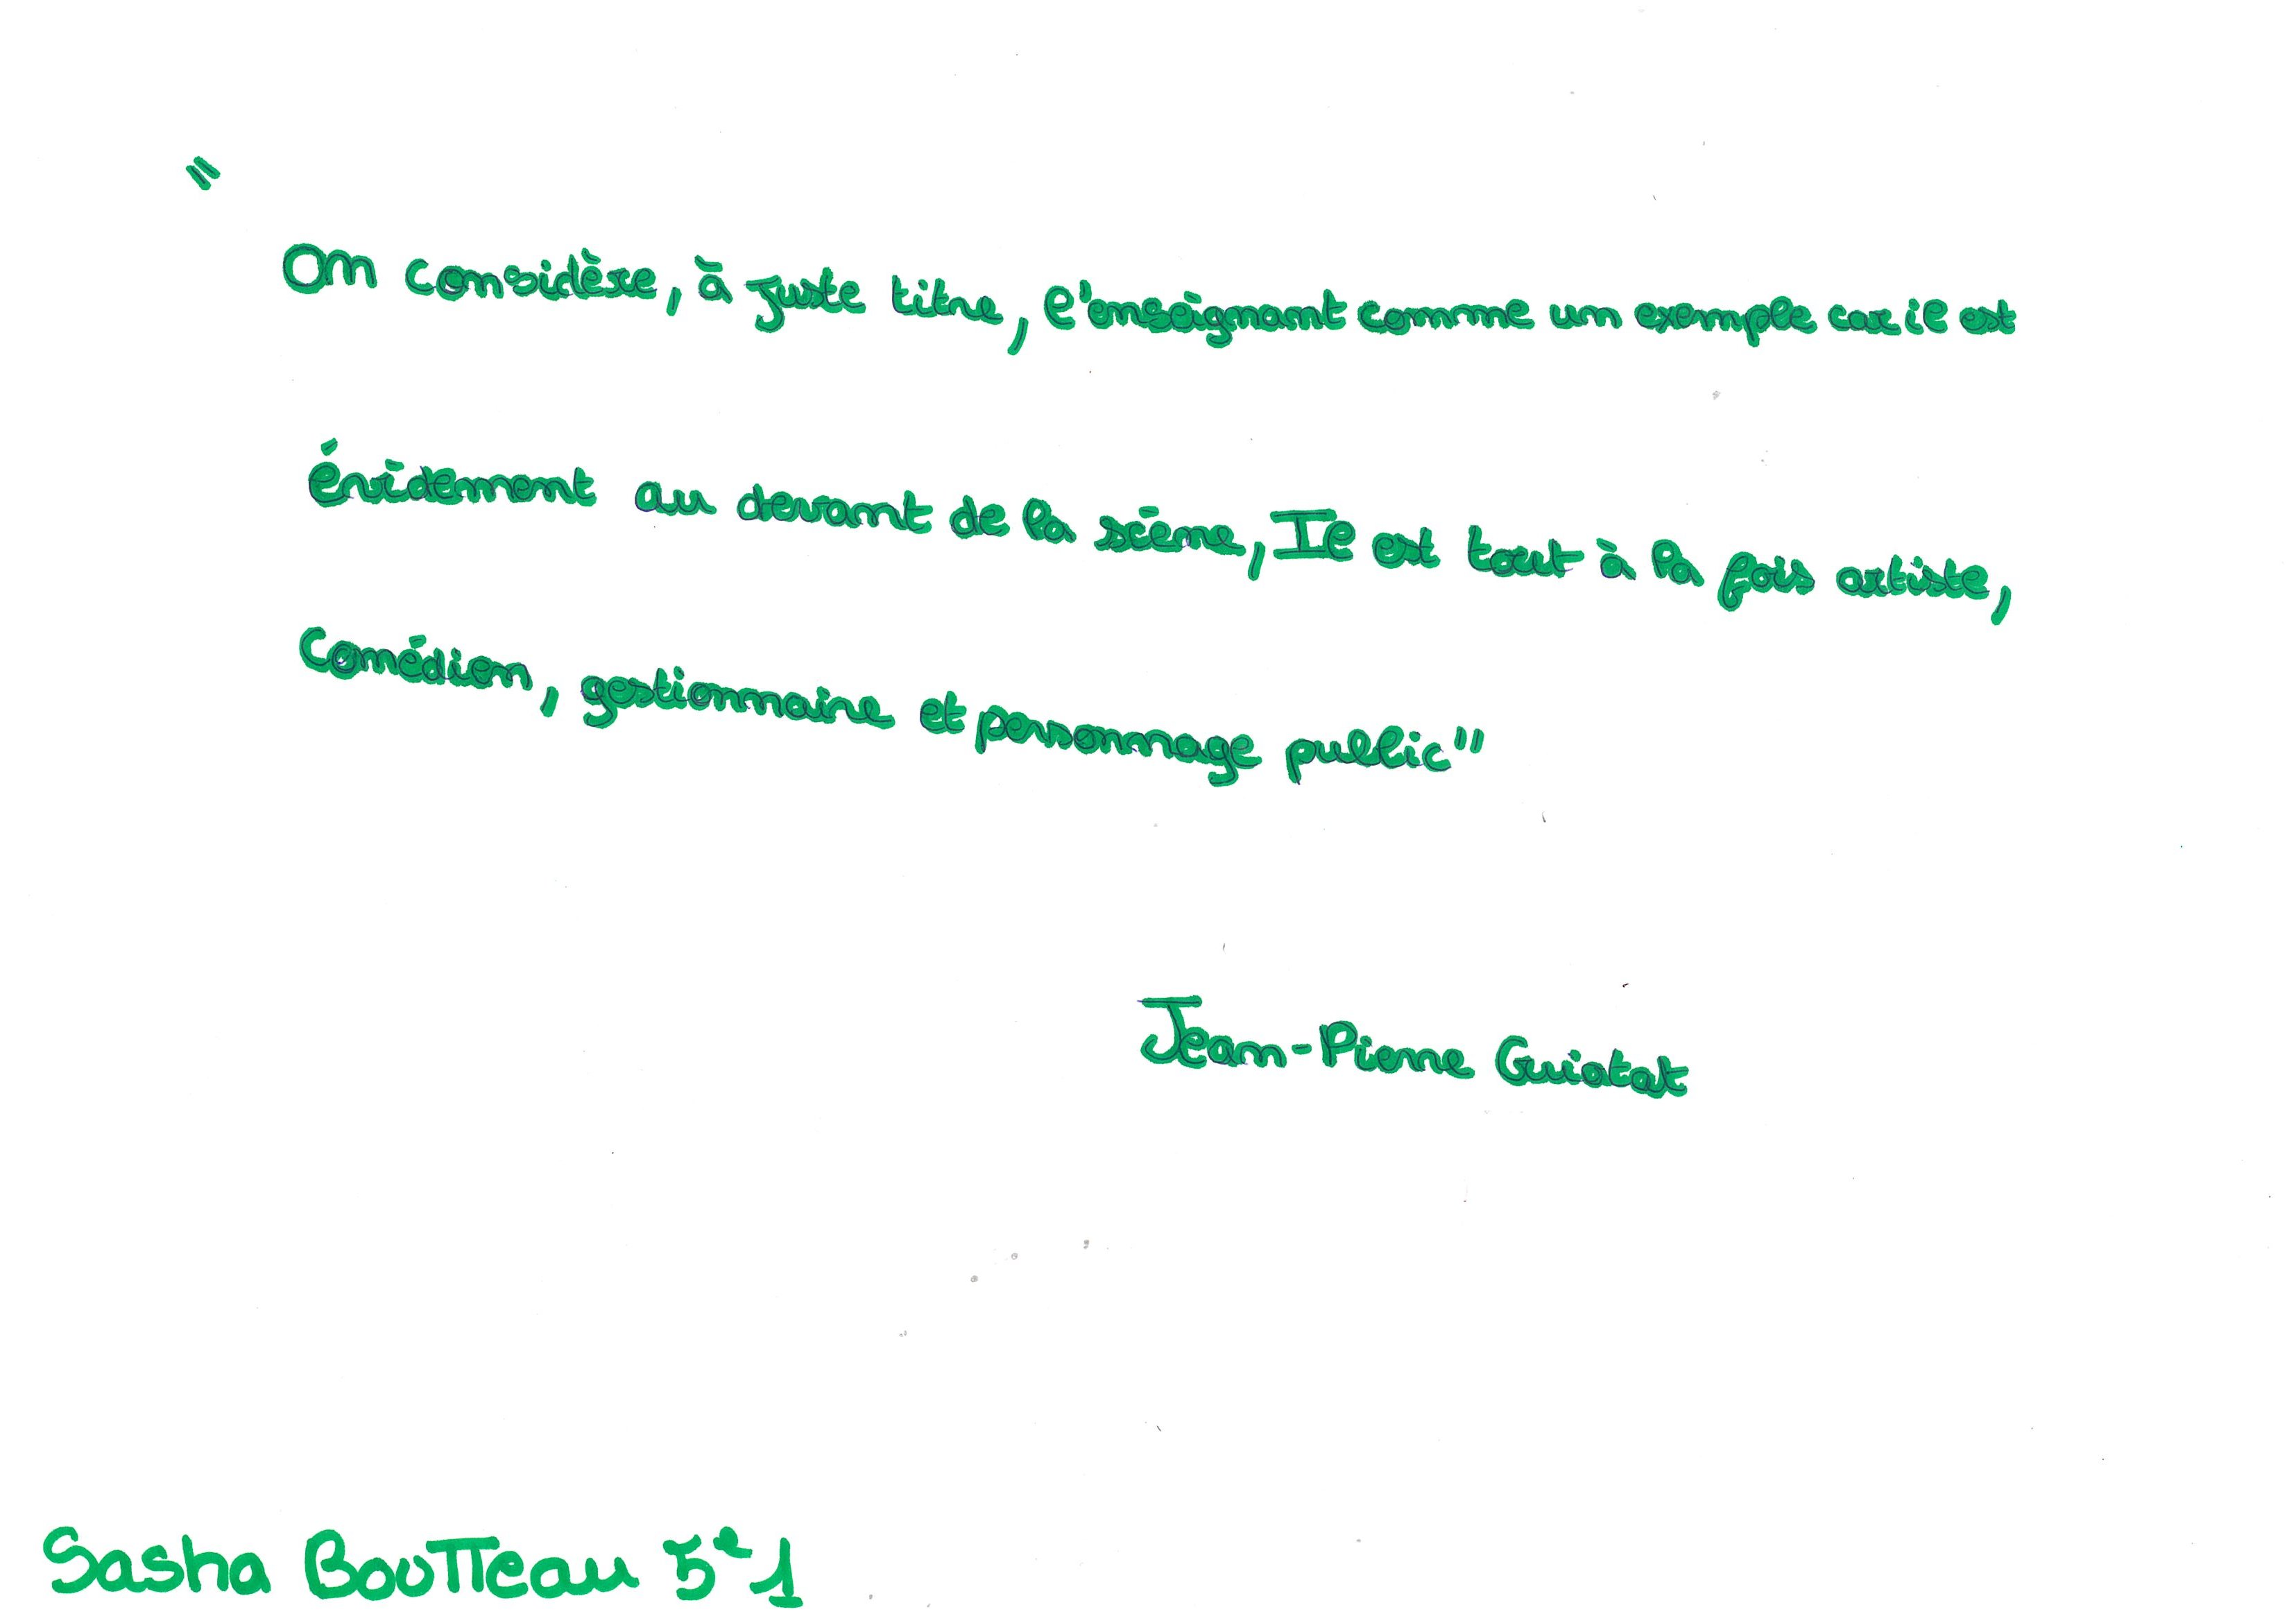 "
On considère, à juste titre, l'enséignant comme un exemple car il est
évidement au devant de la scéne, Il est tout à la fois artiste,
Comédien, gestionnaire et personnage public"
Jean-Pierre Guiotat
Sasha BouTTeau 5e 1